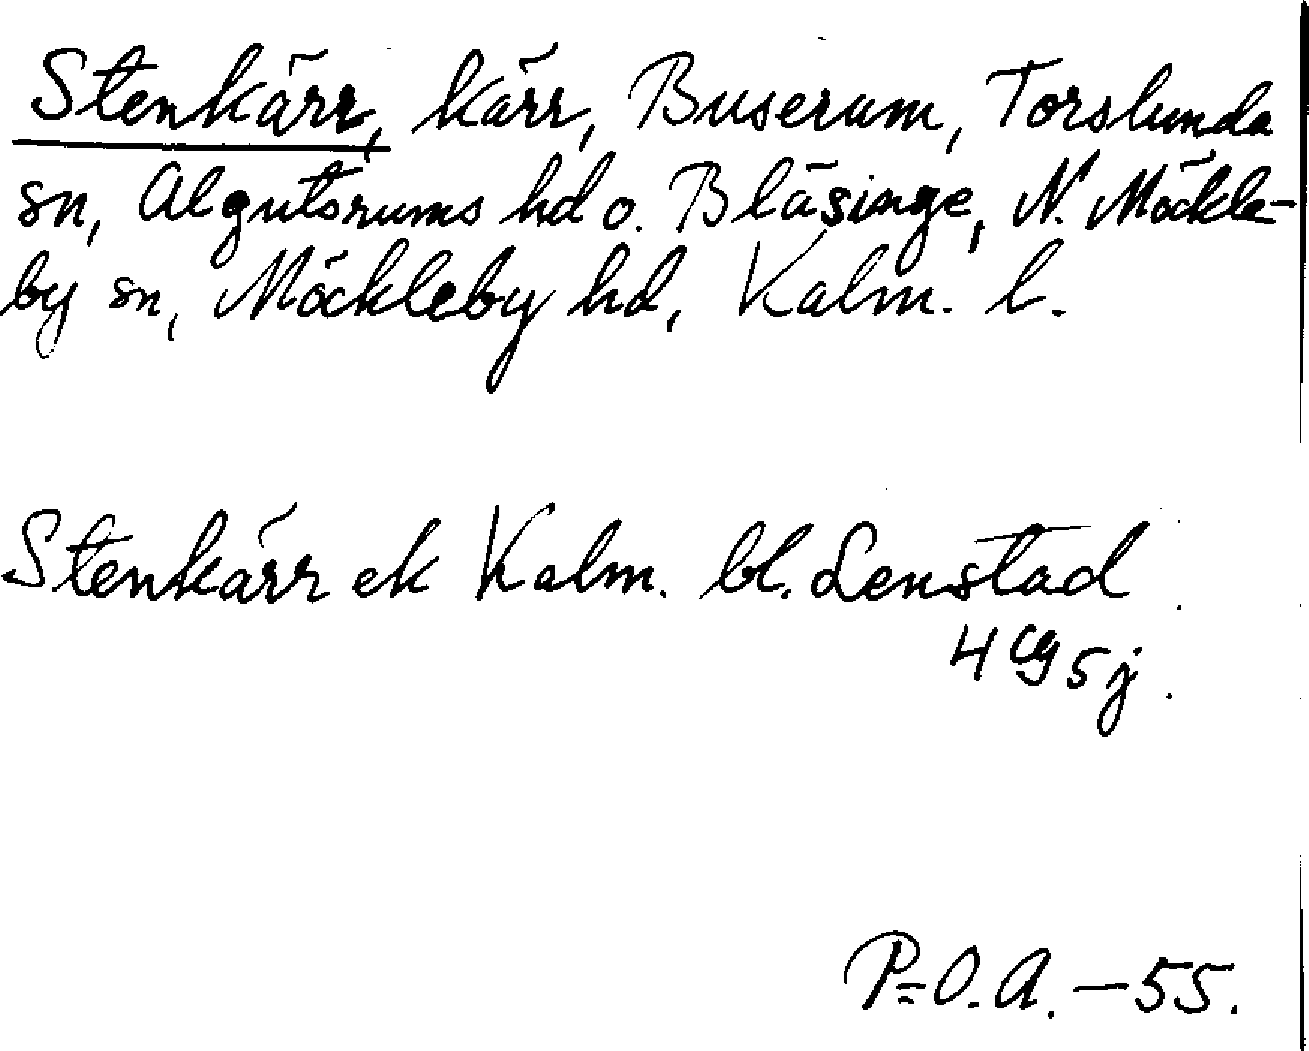 Stenkärr, kärr, Buserum, Torslunda
sn, Algutsrums hd o. Bläsinge, N. Möckle-
by sn, Möckleby hd, Kalm. l.
Stenkärr ek Kalm. bl. Lenstad
4 cg 5 j.
P=O.A.–55.